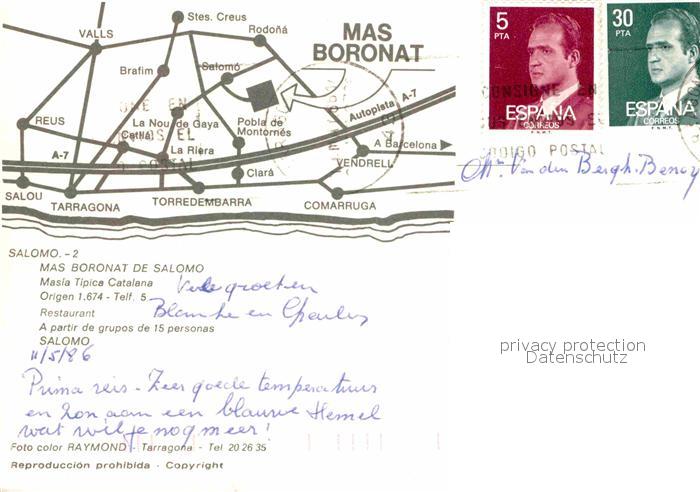 Stes. Creus
VALLS
Rodoñá
MAS
BORONAT
Brafim
Salomó
La Nou de Gaya
REUS
Catllá
Pobla de
Montornés
Autopista A-7
La Riera
A-7
Clará
VENDRELL
A Barcelona
SALOU
TARRAGONA
TORREDEMBARRA
COMARRUGA
5
PTA
ESPAÑA
CORREOS
F.N.M.T.
30
PTA
ESPAÑA
CORREOS
F.N.M.T.
CONSIGNE EN
CODIGO POSTAL
Van den Bergh. Benoy
SALOMO. - 2
MAS BORONAT DE SALOMO
Masía Típica Catalana
Origen 1.674 - Telf. 5
Restaurant
A partir de grupos de 15 personas
SALOMO
Vele groeten
Blanche en Charles
11/5/86
Prima reis - Zeer goede temperatuur
en zon aan een blauwe Hemel
wat wil je nog meer!
Foto color RAYMOND - Tarragona - Tel 20 26 35
Reproducción prohibida - Copyright
privacy protection
Datenschutz